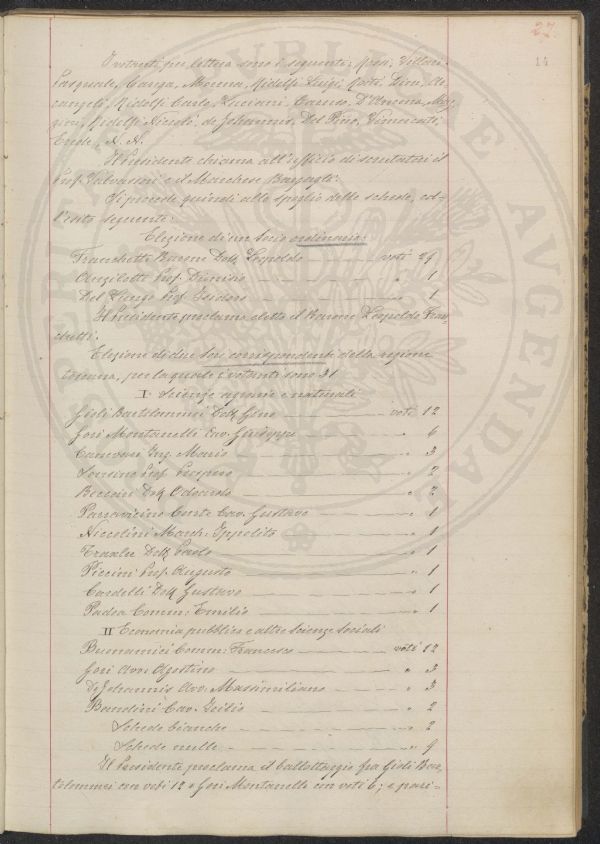 27
14
I votanti per lettera sono i seguenti: Villari
Pasquale, Canga, Morena, Ridolfi Luigi, Conti, Siri, Ar-
cangeli, Ridolfi Carlo, Luciani, Caruso, D'Ancona,
Ridolfi Niccolò, de Johannis, Del Pino, Vimercati,
N. N.
Il Presidente chiama all'ufficio di scrutatori il
Prof. Valvassori e il Marchese Bargagli.
Si procede quindi allo spoglio delle schede, col-
l'esito seguente:
Elezione di un Socio ordinario:
Franchetti Barone Dott. Leopoldo voti 29
Anzilotti Prof. Dionisio " 1
Del Lungo Prof. Isidoro " 1
Il Presidente proclama eletto il Barone Leopoldo Fran-
chetti.
Elezione di due Soci corrispondenti della regione
toscana, per la quale i votanti sono 31
I. Scienze agrarie e naturali
Gioli Bartolommei Dott. Gino voti 12
Gori Montanelli Cav. Giuseppe " 6
Canovari Ing. Mario " 3
" 2
Beccari Dott. Odoardo " 2
Parravicino Conte Cav. Gustavo " 1
Niccolini March. Ippolito " 1
Dott. Paolo " 1
Piccini Prof. Augusto " 1
Cardelli Dott. Gustavo " 1
Padoa Comm: Emilio " 1
II Economia pubblica e altre Scienze Sociali
Buonamici Comm: Francesco voti 12
Gori Avv. Agostino " 3
De Johannis Avv. Massimiliano " 3
Bandini Cav. Icilio " 2
Schede bianche " 2
Schede nulle " 9
Il Presidente proclama il ballottaggio fra Gioli Bar-
tolommei con voti 12 e Gori Montanelli con voti 6; e pari-